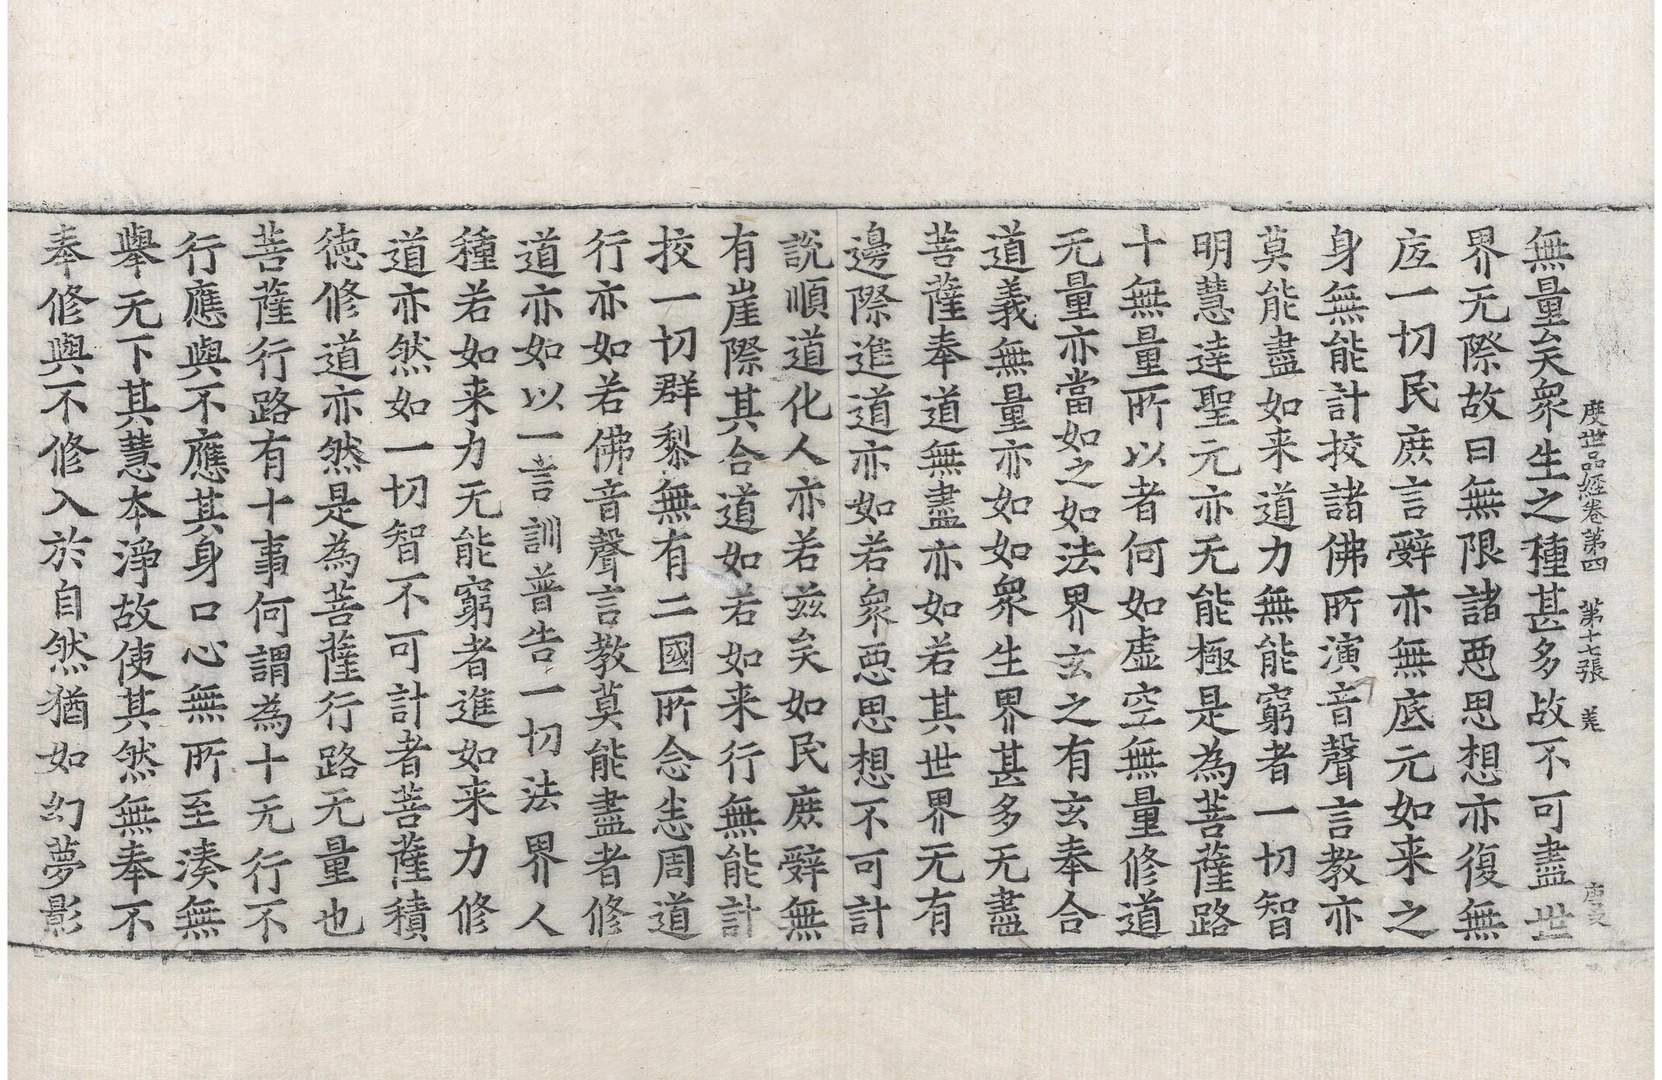 度世品経卷第四　第十七張　羌
無量矣衆生之種甚多故不可盡世
界无際故曰無限諸惡思想亦復無
底一切民庶言辭亦無底元如来之
身無能計挍諸佛所演音聲言教亦
莫能盡如来道力無能窮者一切智
明慧達聖元亦无能極是為菩薩路
十無量所以者何如虚空無量修道
无量亦當如之如法界玄之有玄奉合
道義無量亦如如衆生界甚多无盡
菩薩奉道無盡亦如若其世界无有
邊際進道亦如若衆惡思想不可計
說順道化人亦若兹矣如民庶辭無
有崖際其合道如若如来行無能計
挍一切群黎無有二國所念恚周道
行亦如若佛音聲言教莫能盡者修
道亦如以一言訓普告一切法界人
種若如来力无能窮者進如来力修
道亦然如一切智不可計者菩薩積
徳修道亦然是為菩薩行路无量也
菩薩行路有十事何謂為十无行不
行應與不應其身口心無所至湊無
舉无下其慧本淨故使其然無奉不
奉修與不修入於自然猶如幻夢影